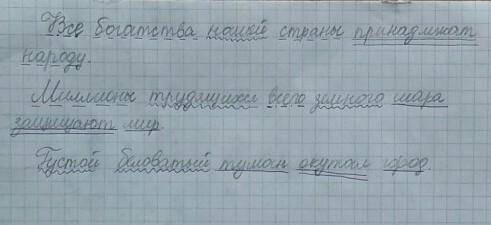 Все богатства нашей страны принадлежат
народу.
Миллионы трудящихся всего земного шара
защищают мир.
Густой беловатый туман окутал город.